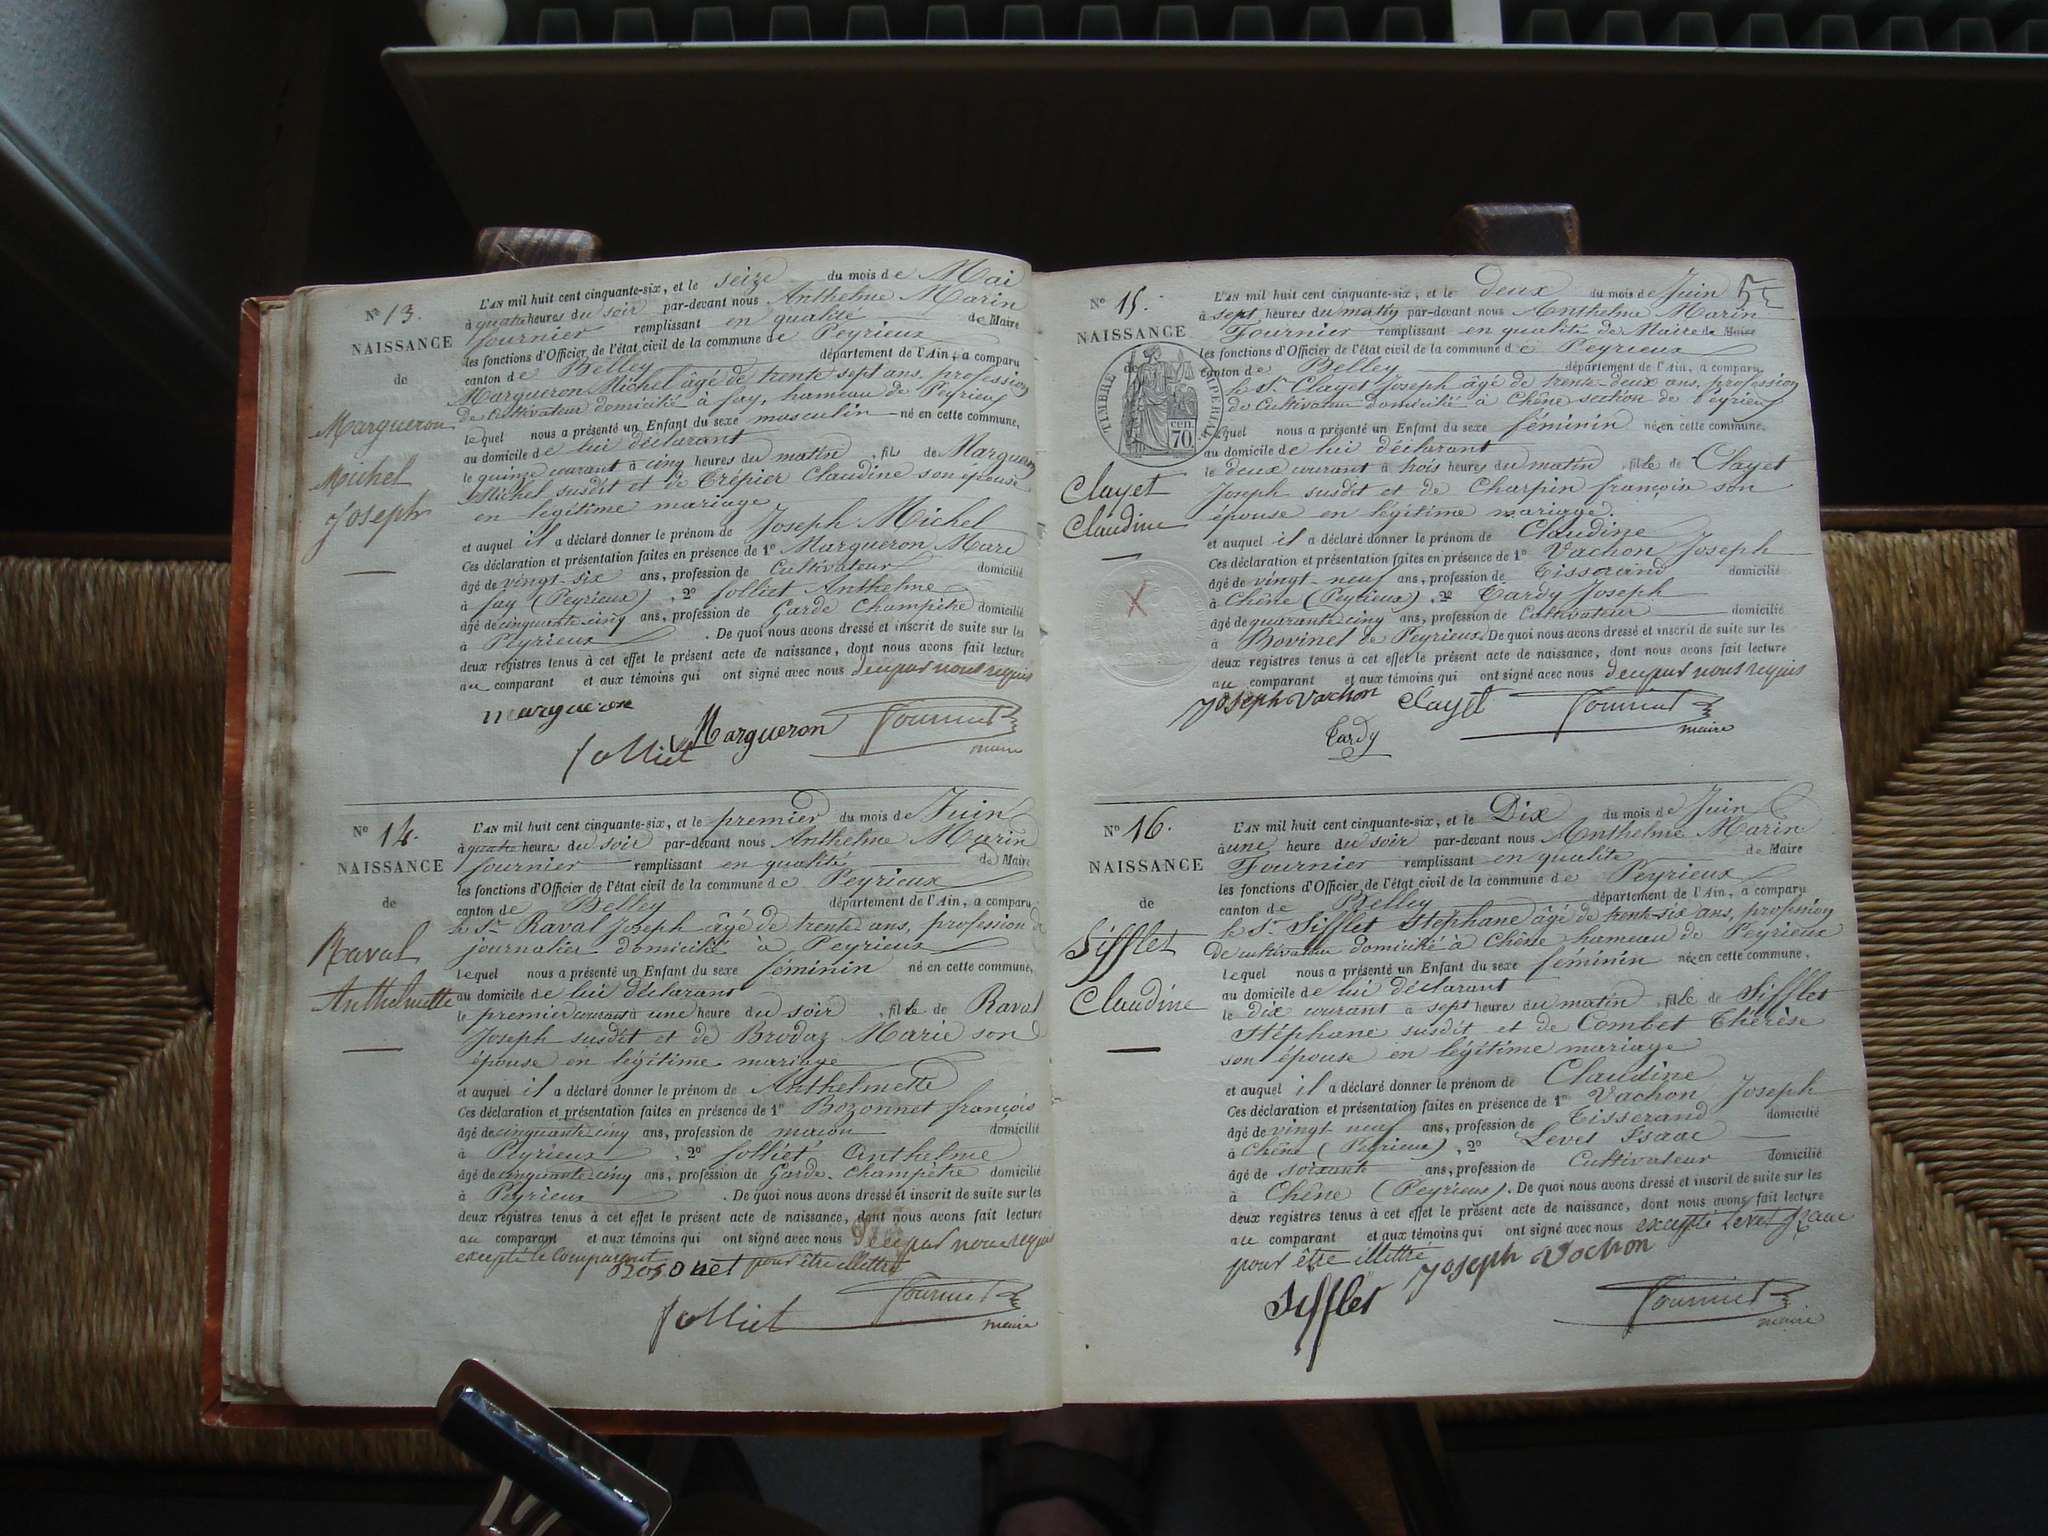 N° 13.
NAISSANCE
de
Margueron
Michel
Joseph
L'AN mil huit cent cinquante-six, et le seize du mois de Mai
à quatre heures du soir par-devant nous Anthelme Marin
Fournier remplissant en qualité de Maire
les fonctions d'Officier de l'état civil de la commune de Peyrieux
canton de Belley département de l'Ain, a comparu
Margueron Michel âgé de trente sept ans, profession
de cultivateur domicilié à fay, hameau de Peyrieux
lequel nous a présenté un Enfant du sexe masculin né en cette commune,
au domicile de lui déclarant
le quinze courant à cinq heures du matin, fils de Margueron
Michel susdit et de Trépier Claudine son épouse
en légitime mariage
et auquel il a déclaré donner le prénom de Joseph Michel
Ces déclaration et présentation faites en présence de 1° Margueron Marc
âgé de vingt-six ans, profession de Cultivateur domicilié
à fay (Peyrieux), 2° Jolliet Anthelme
âgé de cinquante cinq ans, profession de Garde Champêtre domicilié
à Peyrieux. De quoi nous avons dressé et inscrit de suite sur les
deux registres tenus à cet effet le présent acte de naissance, dont nous avons fait lecture
au comparant et aux témoins qui ont signé avec nous de ce par nous requis
margueron
Jolliet Margueron Fournier
maire
N° 14.
NAISSANCE
de
Raval
Anthelmette
L'AN mil huit cent cinquante-six, et le premier du mois de Juin
à quatre heure du soir par-devant nous Anthelme Marin
Fournier remplissant en qualité de Maire
les fonctions d'Officier de l'état civil de la commune de Peyrieux
canton de Belley département de l'Ain, a comparu
le Sr. Raval Joseph âgé de trente ans, profession de
journalier domicilié à Peyrieux
lequel nous a présenté un Enfant du sexe féminin né en cette commune,
au domicile de lui déclarant
le premier courant à une heure du soir, fille de Raval
Joseph susdit et de Brodaz Marie son
épouse en légitime mariage
et auquel il a déclaré donner le prénom de Anthelmette
Ces déclaration et présentation faites en présence de 1° Bozonnet françois
âgé de cinquante cinq ans, profession de maçon domicilié
à Peyrieux, 2° Jolliet Anthelme
âgé de cinquante cinq ans, profession de Garde-Champêtre domicilié
à Peyrieux. De quoi nous avons dressé et inscrit de suite sur les
deux registres tenus à cet effet le présent acte de naissance, dont nous avons fait lecture
au comparant et aux témoins qui ont signé avec nous de ce par nous requis
excepté le comparant pour être illettré
Bosonet
Jolliet Fournier
maire
N° 15.
NAISSANCE
de
TIMBRE IMPERIAL
CEN.
70
Clayet
Claudine
L'AN mil huit cent cinquante-six, et le deux du mois de Juin
à sept heures du matin par-devant nous Anthelme Marin
Fournier remplissant en qualité de Maire de Maire
les fonctions d'Officier de l'état civil de la commune de Peyrieux
canton de Belley département de l'Ain, a comparu
le Sr. Clayet Joseph âgé de trente-deux ans, profession
de cultivateur domicilié à Chêne section de Peyrieux
lequel nous a présenté un Enfant du sexe féminin née en cette commune,
au domicile de lui déclarant
le deux courant à trois heures du matin, fille de Clayet
Joseph susdit et de Charpin françoise son
épouse en légitime mariage.
et auquel il a déclaré donner le prénom de Claudine
Ces déclaration et présentation faites en présence de 1° Vachon Joseph
âgé de vingt-neuf ans, profession de Tisserand domicilié
à Chêne (Peyrieux), 2° Tardy Joseph
âgé de quarante cinq ans, profession de Cultivateur domicilié
à Bovinel de Peyrieux. De quoi nous avons dressé et inscrit de suite sur les
deux registres tenus à cet effet le présent acte de naissance, dont nous avons fait lecture
au comparant et aux témoins qui ont signé avec nous de ce par nous requis
Joseph Vachon Clayet Fournier
Tardy maire
N° 16.
NAISSANCE
de
Sifflet
Claudine
L'AN mil huit cent cinquante-six, et le Dix du mois de Juin
à une heure du soir par-devant nous Anthelme Marin
Fournier remplissant en qualité de Maire
les fonctions d'Officier de l'état civil de la commune de Peyrieux
canton de Belley département de l'Ain, a comparu
le Sr. Sifflet Stéphane âgé de trente-six ans, profession
de cultivateur domicilié à Chêne hameau de Peyrieux
lequel nous a présenté un Enfant du sexe féminin née en cette commune,
au domicile de lui déclarant
le dix courant à sept heures du matin, fille de Sifflet
Stéphane susdit et de Combet Thérèse
son épouse en légitime mariage
et auquel il a déclaré donner le prénom de Claudine
Ces déclaration et présentation faites en présence de 1° Vachon Joseph
âgé de vingt neuf ans, profession de Tisserand domicilié
à Chêne (Peyrieux), 2° Levet Isaac
âgé de soixante ans, profession de Cultivateur domicilié
à Chêne (Peyrieux). De quoi nous avons dressé et inscrit de suite sur les
deux registres tenus à cet effet le présent acte de naissance, dont nous avons fait lecture
au comparant et aux témoins qui ont signé avec nous excepté Levet Isaac
pour être illettré Joseph Vachon
Sifflet Fournier
maire